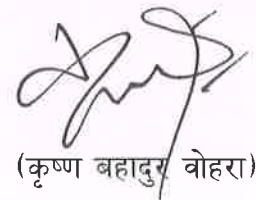 (कृष्ण बहादुर वोहरा)